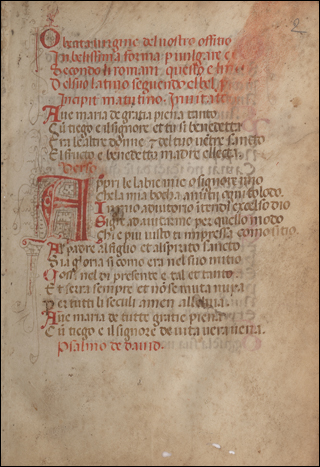 O beata virgine del nostro offitio
In belissima forma p uulgare e
Secondo li romani questo e
Del suo latino seguendo el bel
Incipit matutino. Inuitato
Aue maria de gratia piena tanto
Cū tiego e il signore et tu si benedetta
Fra le altre donne & del tuo uētre sancto
El fructo e benedetta madre ellecta
Verso
Apri le labie mie o signore mio
che la mia bocha
In mio adiutorio itendi excelso dio
Signore ad aiutarme per quello modo
Chi e piu iusto ti impressa como sitio.
Al padre al figlio et al spirito sancto
Sia gloria si como era nel suo initio
Cossi nel di presente e tal et tanto
Et sera sempre et nō se muta mira
Per tutti li seculi amen alleluia
Aue maria de tutte gratie piena
Cū tiego e il signore de uita uera uena.
Psalmo de dauid.